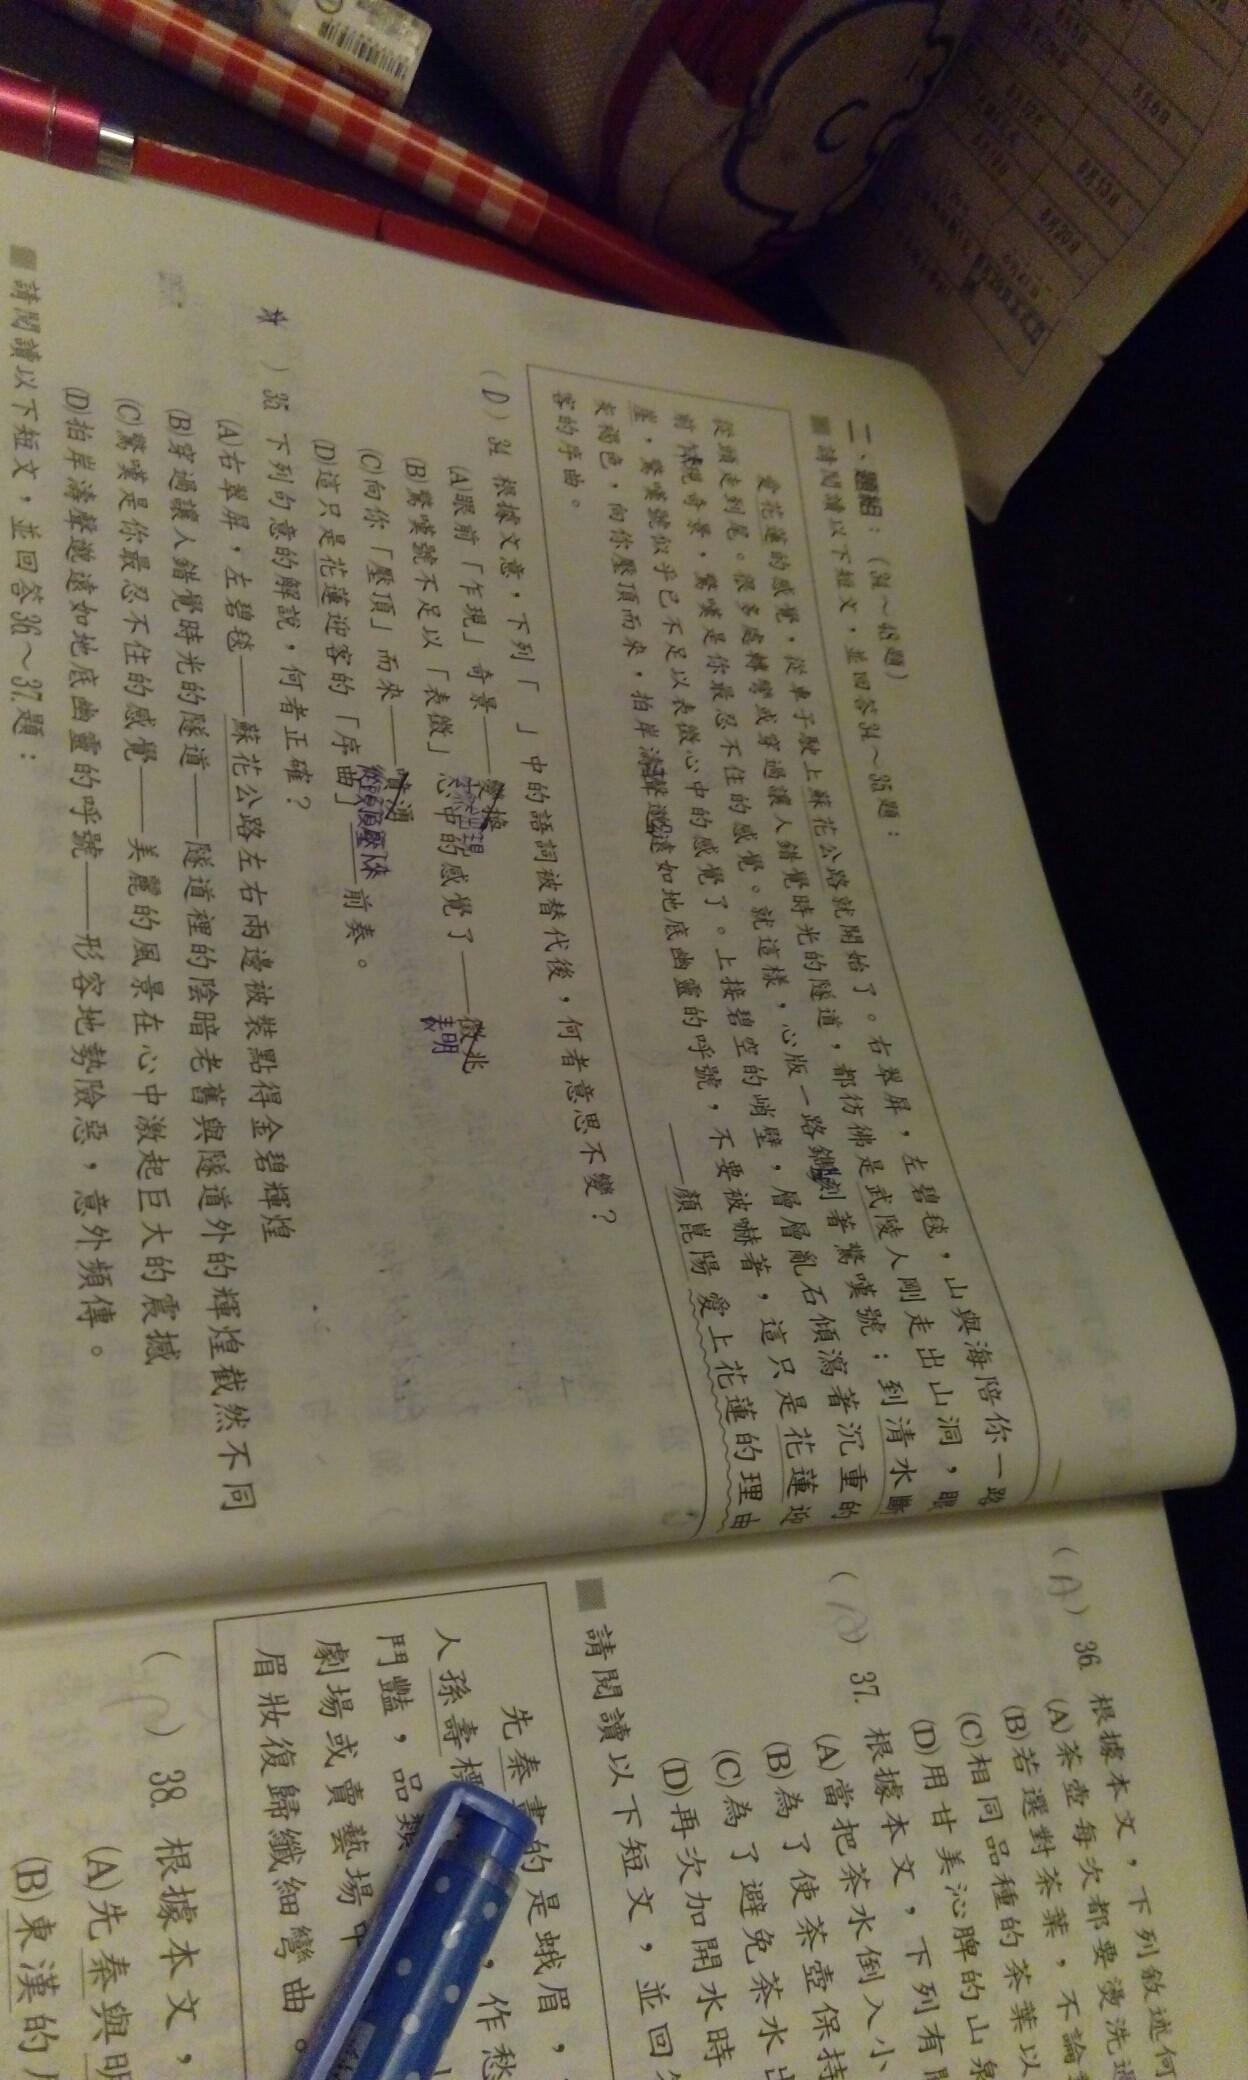 二、題組：（34～48題）
請閱讀以下短文，並回答34～35題：
愛花蓮的感覺，從車子駛上蘇花公路就開始了。右翠屏，左碧毯，山與海陪你一路
從頭走到尾。很多處轉彎或穿過讓人錯覺時光的隧道，都彷彿是武陵人剛走出山洞，眼
前乍現奇景，驚嘆是你最忍不住的感覺。就這樣，心版一路鐫刻著驚嘆號；到清水斷
崖，驚嘆號似乎已不足以表徵心中的感覺了。上接碧空的峭壁，層層亂石傾瀉著沉重的
灰褐色，向你壓頂而來，拍岸濤聲邈遠如地底幽靈的呼號，不要被嚇著，這只是花蓮迎
客的序曲。
——顏崑陽 愛上花蓮的理由
（D）34. 根據文意，下列「 」中的語詞被替代後，何者意思不變？
(A)眼前「乍現」奇景——變換
(B)驚嘆號不足以「表徵」心中的感覺了——徵兆
表明
(C)向你「壓頂」而來——噴湧
從頭頂壓來
(D)這只是花蓮迎客的「序曲」——前奏。
）35. 下列句意的解說，何者正確？
(A)右翠屏，左碧毯——蘇花公路左右兩邊被裝點得金碧輝煌
(B)穿過讓人錯覺時光的隧道——隧道裡的陰暗老舊與隧道外的輝煌截然不同
(C)驚嘆是你最忍不住的感覺——美麗的風景在心中激起巨大的震撼
(D)拍岸濤聲邈遠如地底幽靈的呼號——形容地勢險惡，意外頻傳。
請閱讀以下短文，並回答36～37題：
（A）36. 根據本文，下列敘述何
(A)茶壺每次都要燙洗過
(B)若選對茶葉，不論
(C)相同品種的茶葉以
(D)用甘美沁脾的山泉
（ ）37. 根據本文，下列有關
(A)當把茶水倒入小
(B)為了使茶壺保持
(C)為了避免茶水
(D)再次加開水時
請閱讀以下短文，並回
先秦 的是蛾眉，
人孫壽標 ，作愁
鬥豔，品類
劇場或賣藝場中
眉妝復歸纖細彎曲。
（ ）38. 根據本文，
(A)先秦與明
(B)東漢的